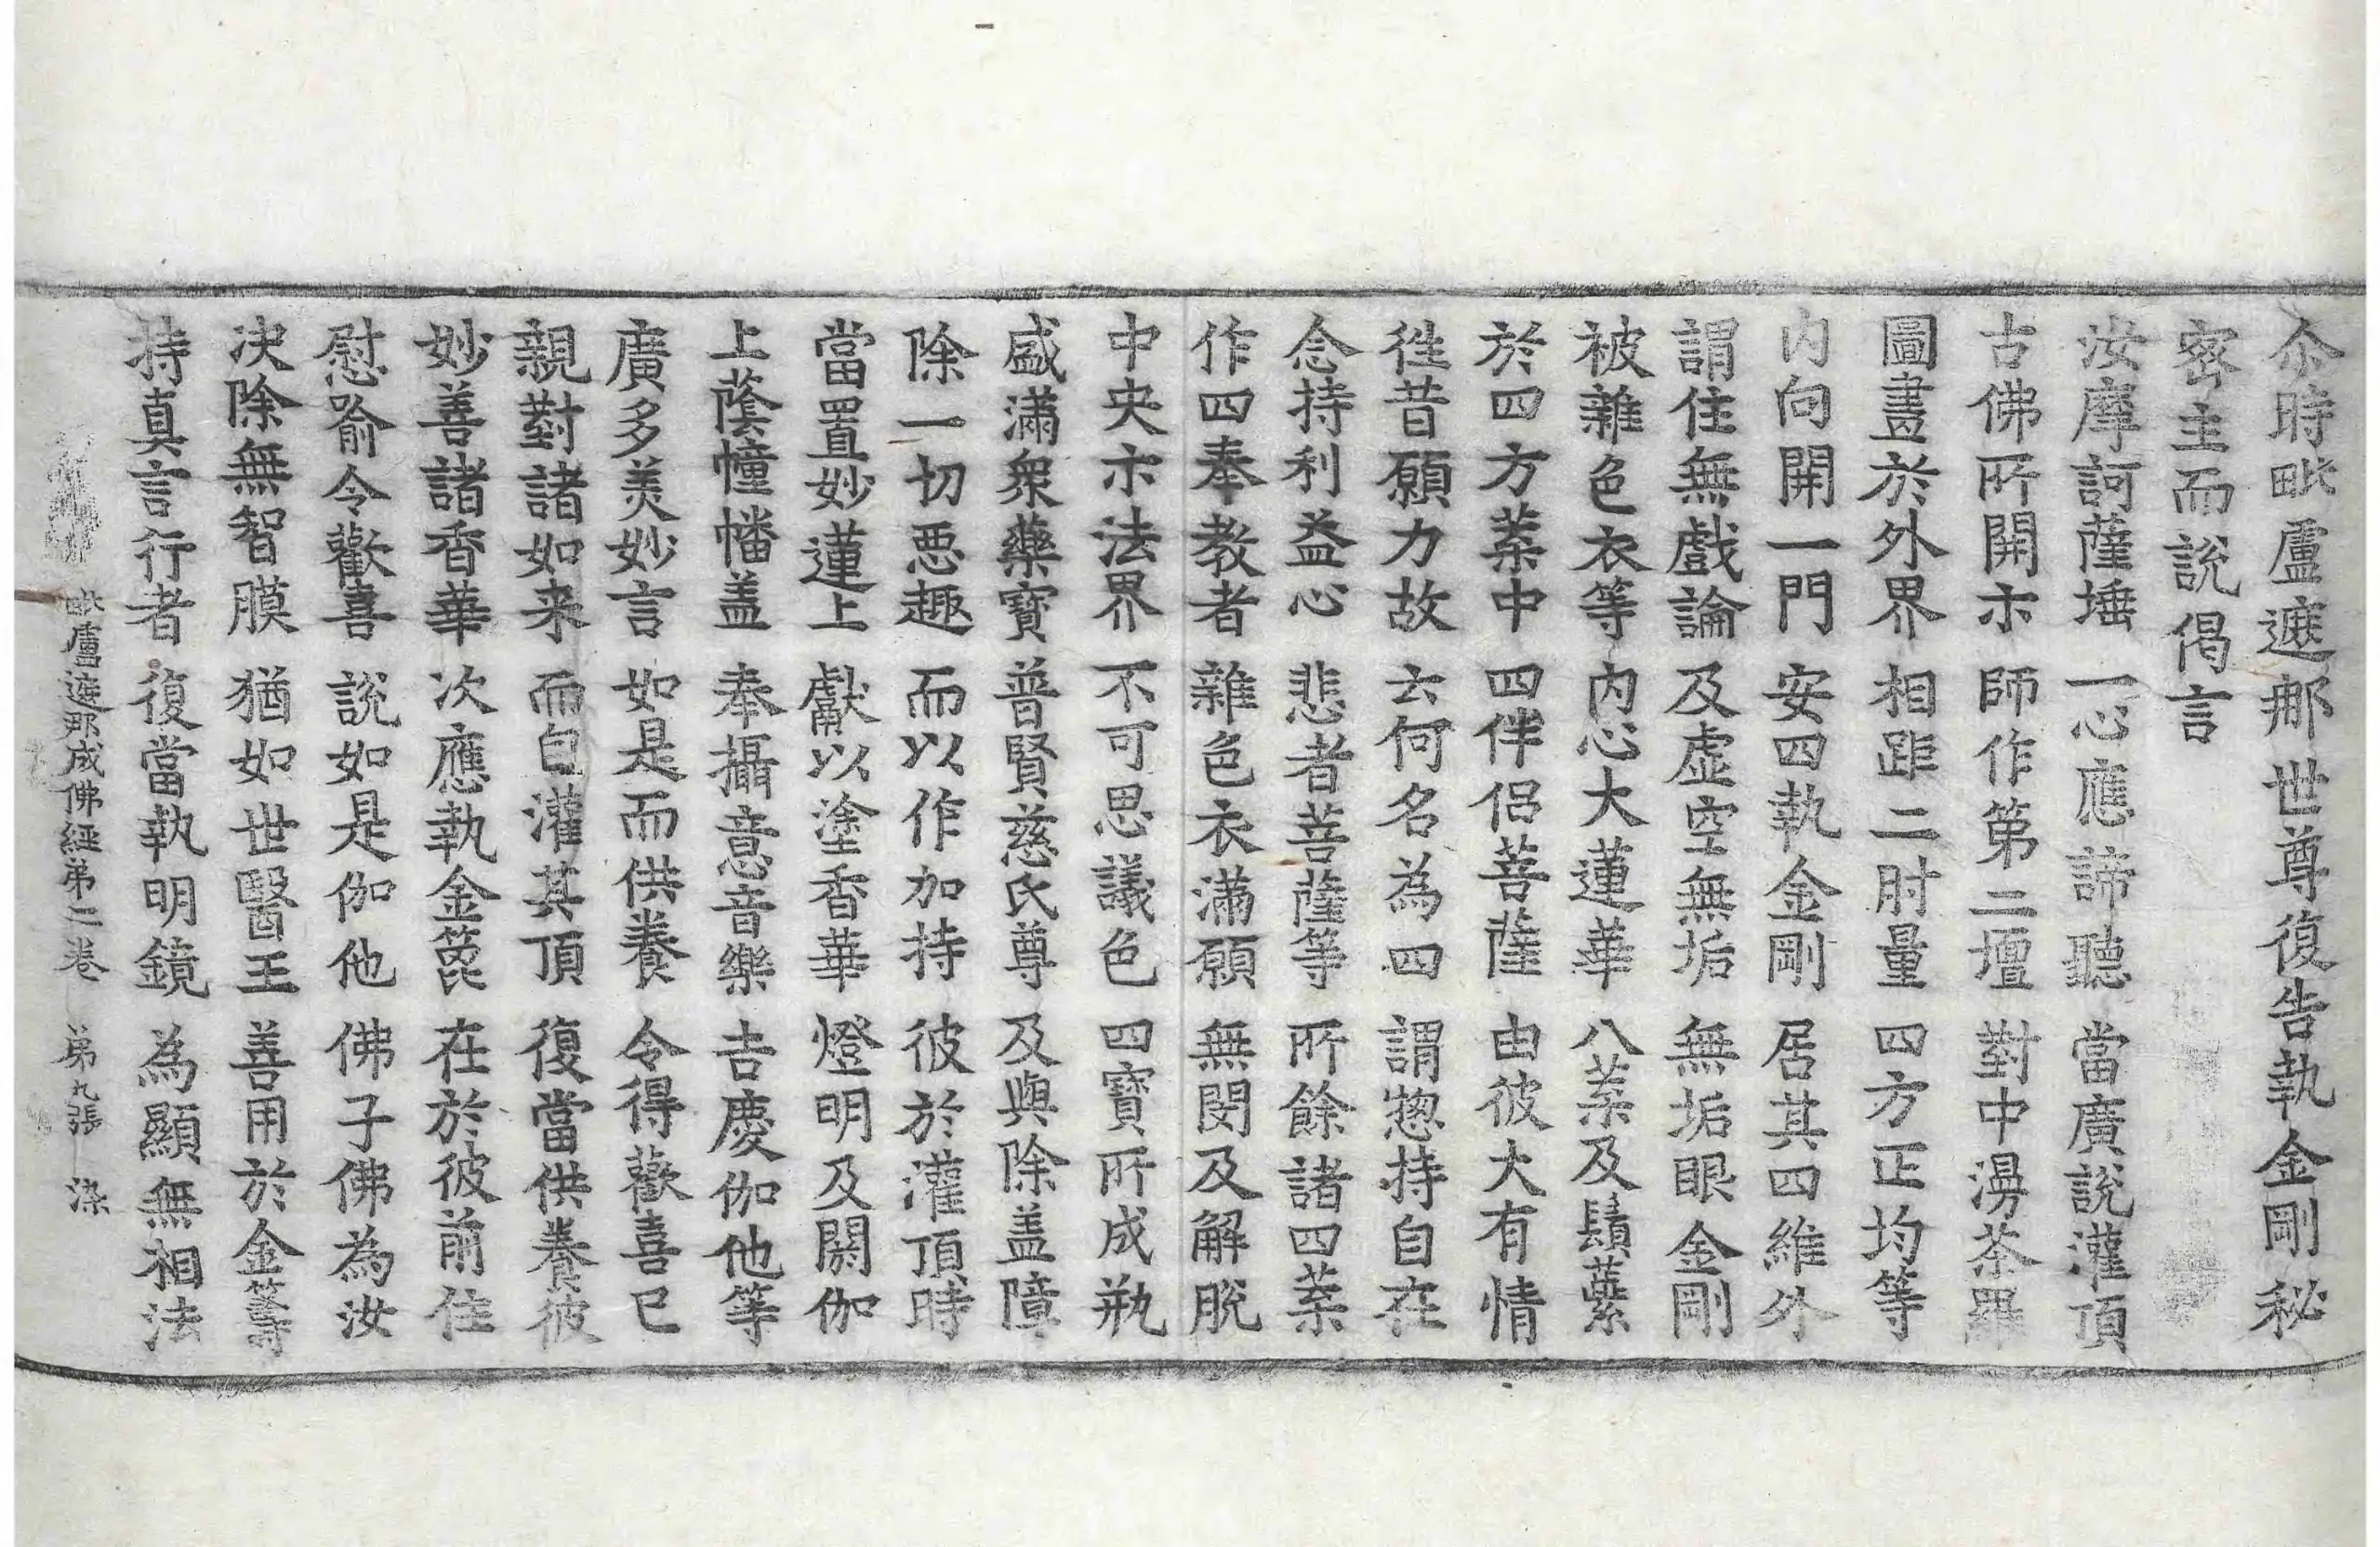 尒時毗盧遮那世尊復告執金剛秘
密主而說偈言
汝摩訶薩埵 一心應諦聽 當廣說灌頂
古佛所開示 師作第二壇 對中漫荼羅
圖畫於外界 相距二肘量 四方正均等
内向開一門 安四執金剛 居其四維外
謂住無戲論 及虛空無垢 無垢眼金剛
被雜色衣等 内心大蓮華 八葉及鬚蘂
於四方葉中 四伴侶菩薩 由彼大有情
徃昔願力故 云何名為四 謂惣持自在
念持利益心 悲者菩薩等 所餘諸四葉
作四奉教者 雜色衣滿願 無閡及解脫
中央示法界 不可思議色 四寶所成瓶
盛滿衆藥寶 普賢慈氏尊 及與除盖障
除一切惡趣 而以作加持 彼於灌頂時
當置妙蓮上 獻以塗香華 燈明及閼伽
上蔭幢幡盖 奉攝意音樂 吉慶伽他等
廣多美妙言 如是而供養 令得歡喜已
親對諸如来 而自灌其頂 復當供養彼
妙善諸香華 次應執金篦 在於彼前住
慰喻令歡喜 說如是伽他 佛子佛為汝
决除無智膜 猶如世醫王 善用於金籌
持真言行者 復當執明鏡 為顯無相法
毗盧遮那成佛經第二卷 第九張 染